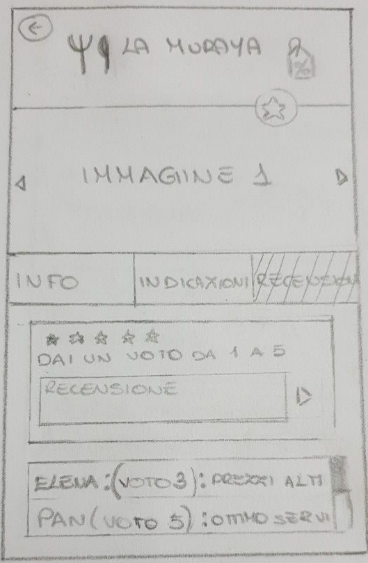 LA MURAYA
%
IMMAGIINE 1
INFO
INDICAXIONI
RECENSIONI
DAI UN VOTO DA 1 A 5
RECENSIONE
ELENA:(VOTO 3): PREXXI ALTI
PAN(VOTO 5):OTTIMO SERVI